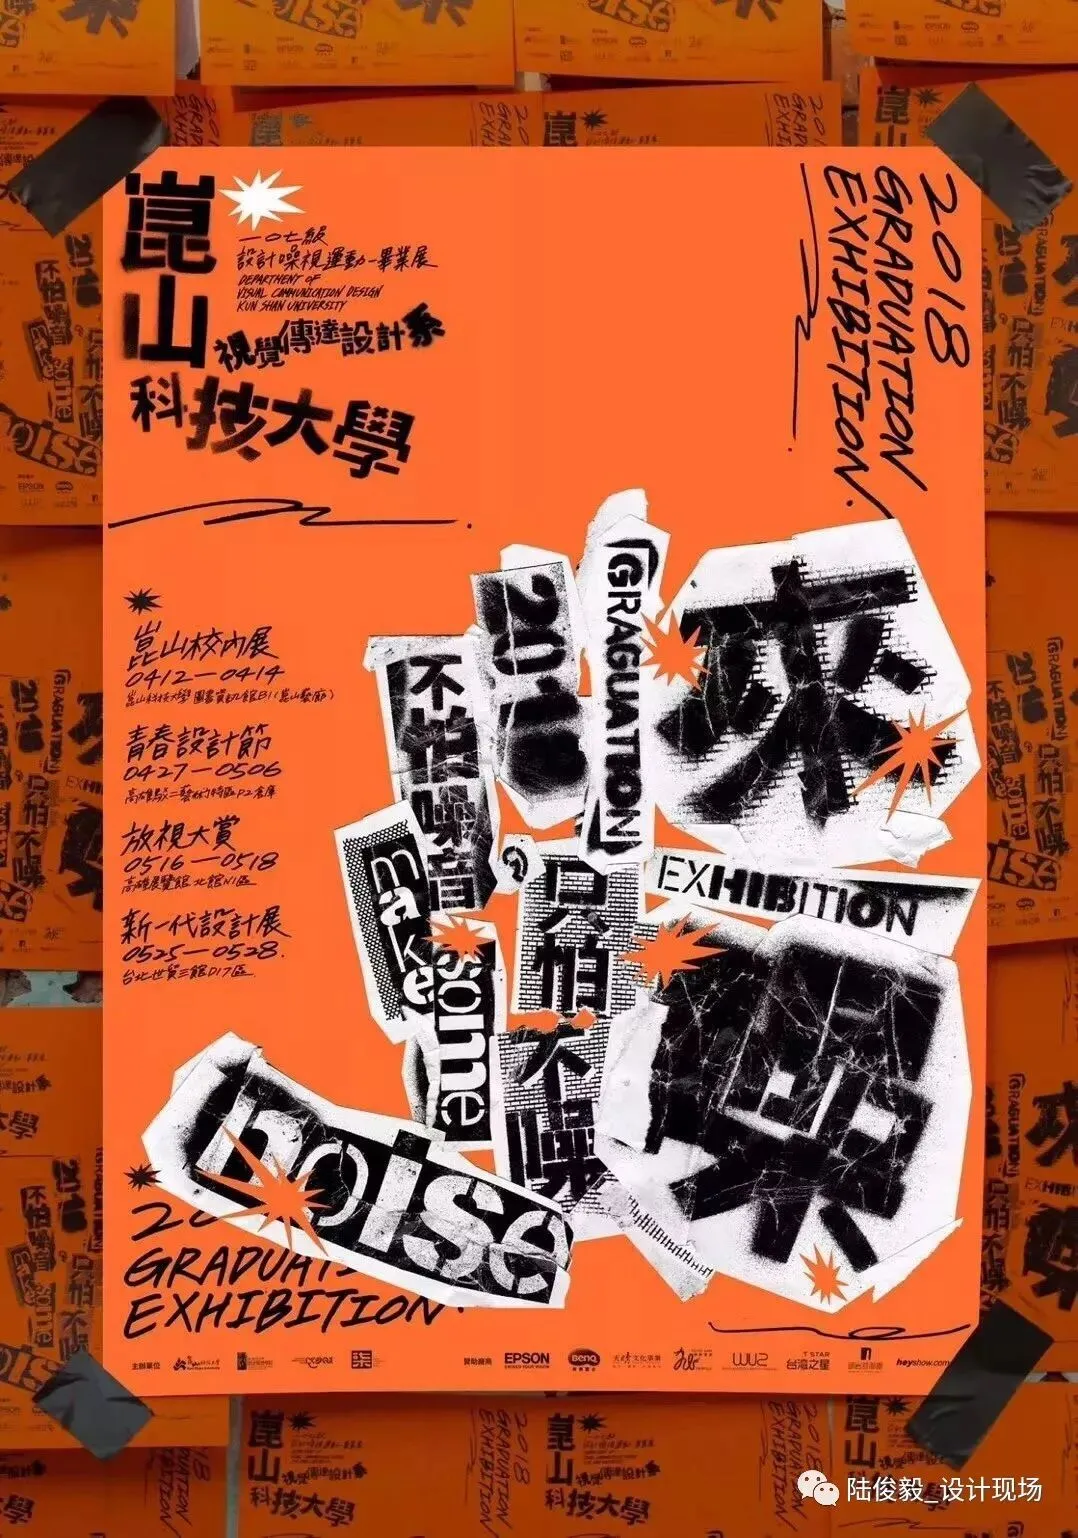 崑山
科技大學
視覺傳達設計系
一〇七級
設計噪視運動-畢業展
DEPARTMENT OF
VISUAL COMMUNICATION DESIGN
KUN SHAN UNIVERSITY
2018
GRADUATION
EXHIBITION.
崑山校內展
0412—0414
崑山科技大學 圖書資訊館B1(崑山藝廊)
青春設計節
0427—0506
高雄駁二藝術特區P2倉庫
放視大賞
0516—0518
高雄展覽館 北館N1區
新一代設計展
0525—0528.
台北世貿三館D17區
來
噪
2018
GRAGUATION
EXHIBITION
不怕噪音
只怕不噪
make
some
noise
GRADUATI
EXHIBITION.
主辦單位
贊助廠商
EPSON
BenQ
WUZ
T STAR
台灣之星
heyshow.com
陆俊毅_设计现场